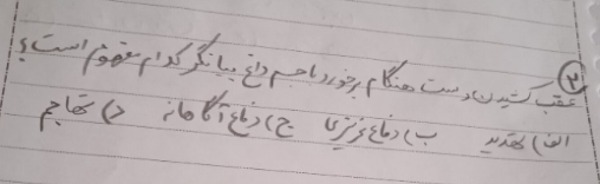 ۲) عقب کشیدن دست هنگام برخورد با جسم داغ بیانگر کدام مفهوم است؟
الف) تهدید ب) دفاع غریزی ج) دفاع آگاهانه د) تهاجم